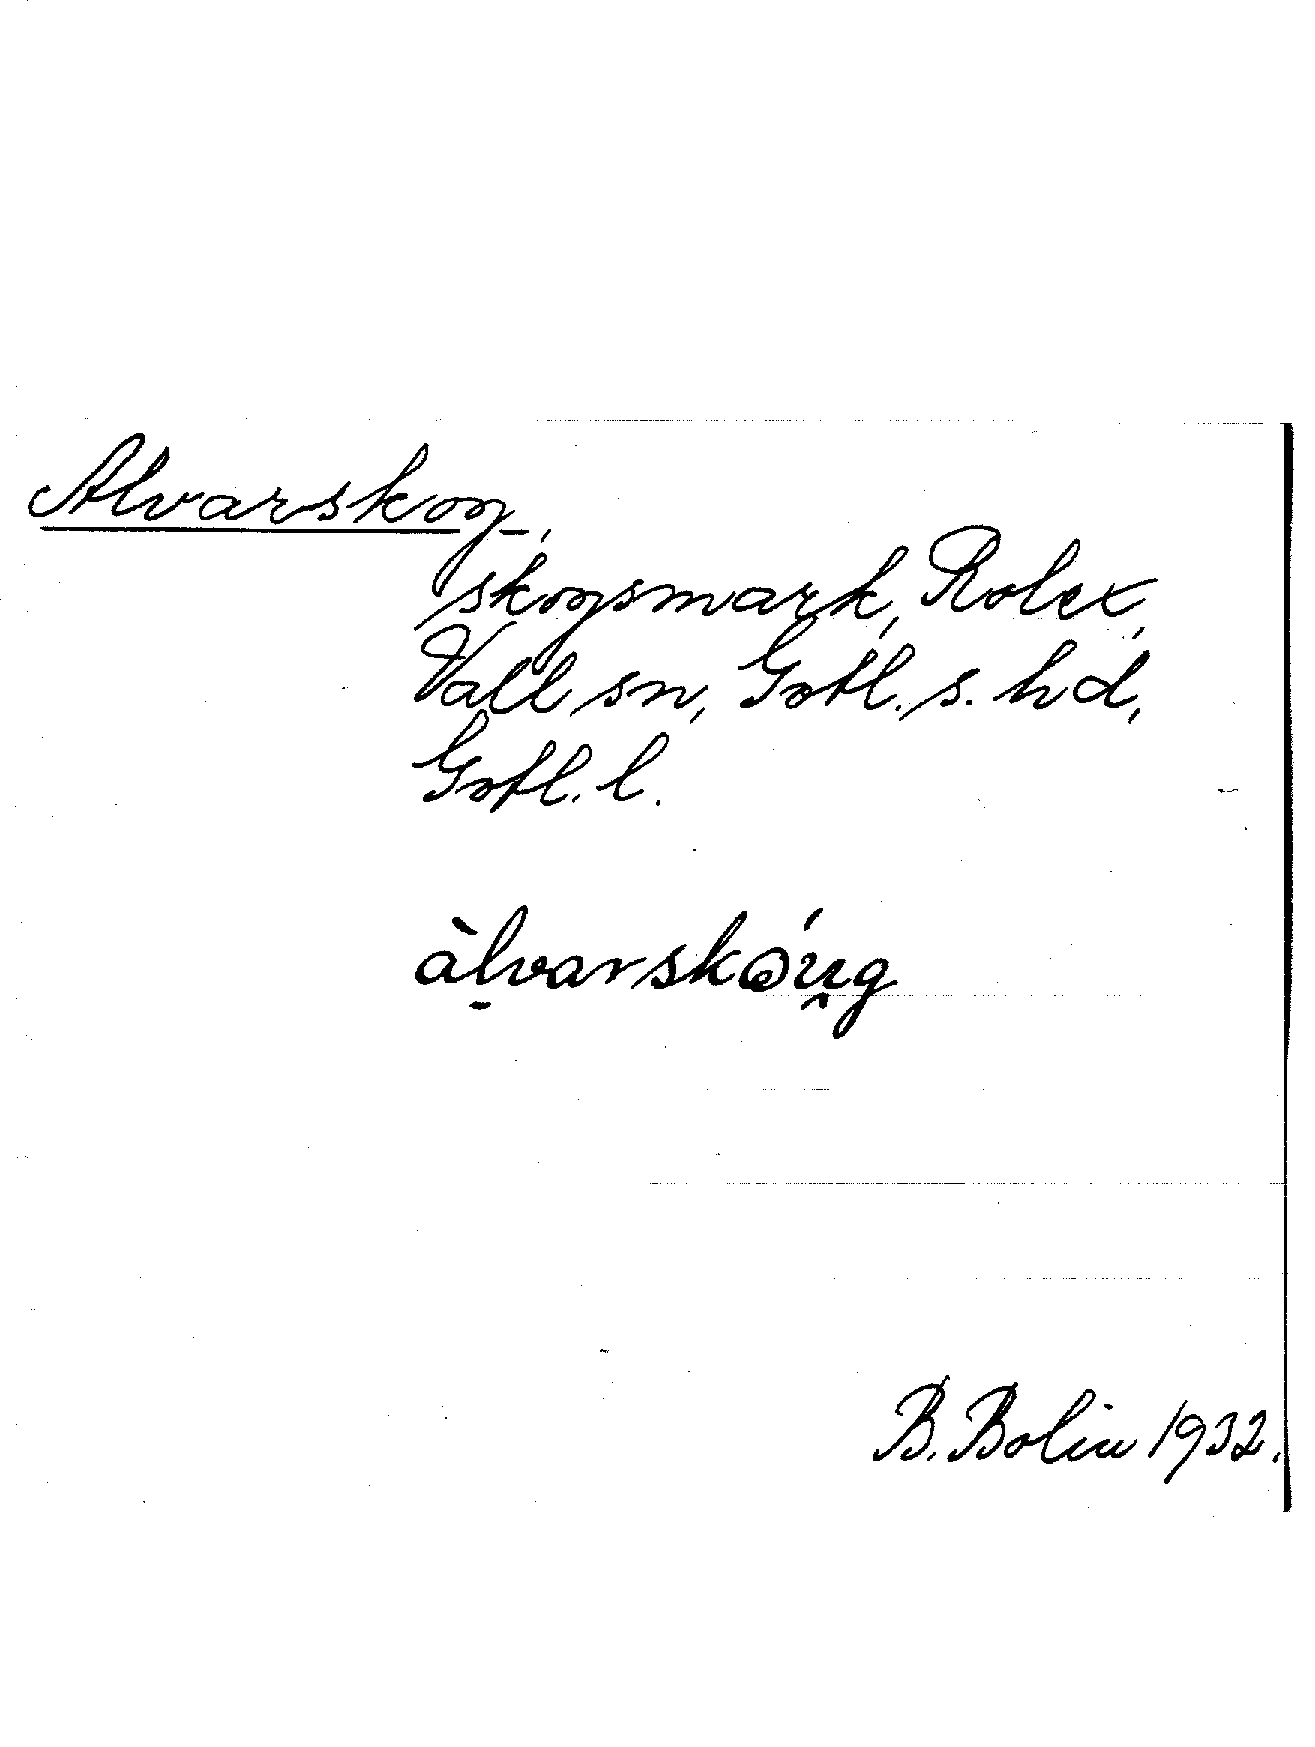 Alvarskog,
skogsmark, Rolex,
Vall sn, Gotl. s. hd,
Gotl. l.
àl̠varskɷ́u̯g
B. Bolin 1932.